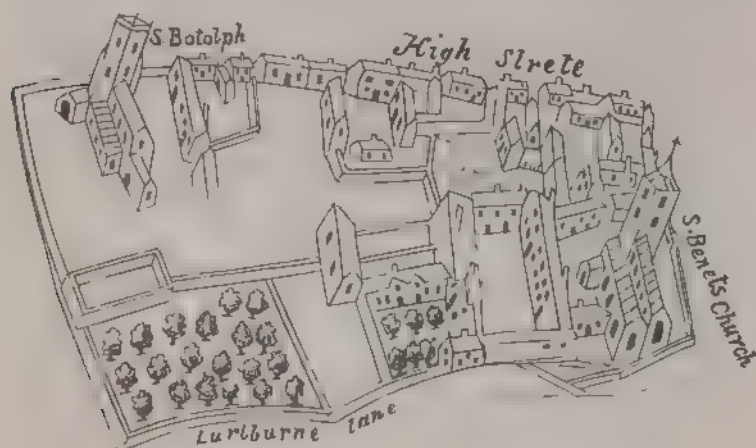 S. Botolph
High Strete
S. Benets Church
Lurlburne lane